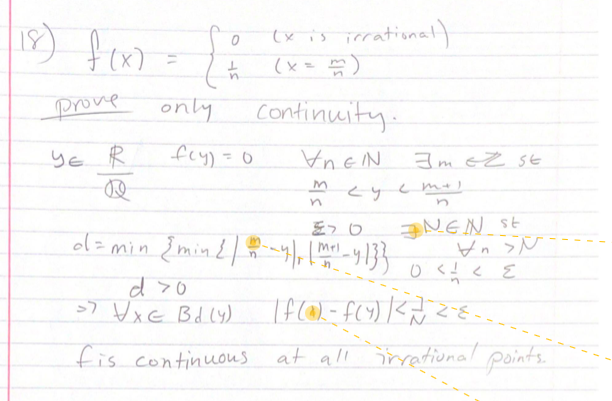 18) f(x) = { 0 (x is irrational)
1/n (x = m/n)
prove only continuity.
y ∈ ℝ/ℚ f(y) = 0 ∀n ∈ ℕ ∃m ∈ ℤ st
m/n < y < m+1/n
ε > 0 ∃N ∈ ℕ st
d = min {min {|m/n - y|, |m+1/n - y|}} ∀n > N
0 < 1/n < ε
d > 0
⇒ ∀x ∈ Bd(y) |f( ) - f(y)| < 1/N < ε
f is continuous at all irrational points.